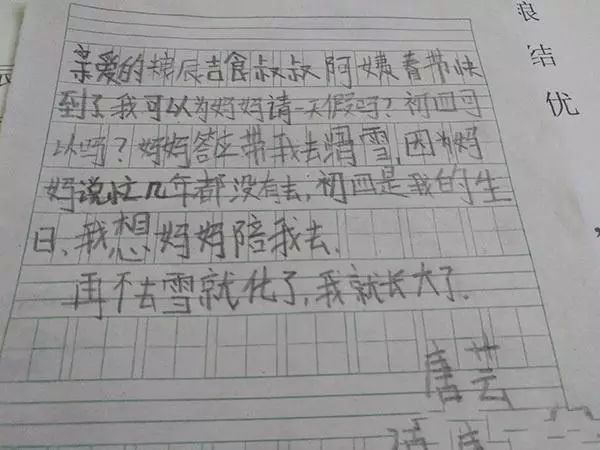 亲爱的粮辰吉食叔叔阿姨春节快
到了我可以为妈妈请一天假吗?初四可
以吗?妈妈答应带我去滑雪,因为妈
妈说忙几年都没有去,初四是我的生
日、我想妈妈陪我去、
再不去雪就化了,我就长大了.
唐芸
结
优